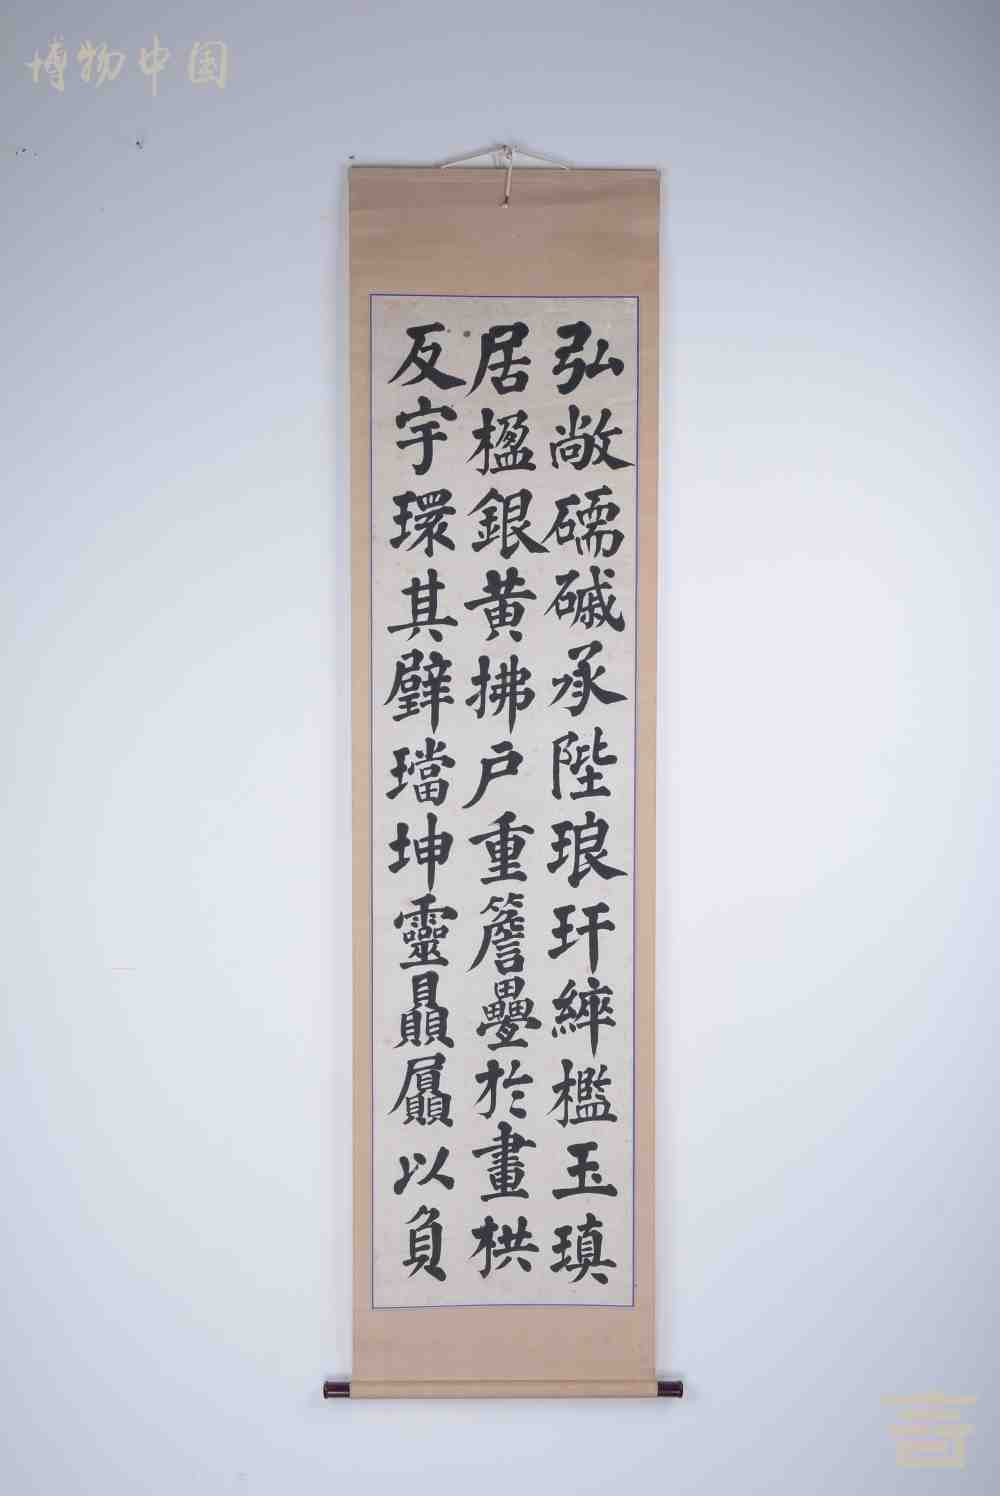 博物中国
弘敞礝磩承陛琅玕綷檻玉瑱
居楹銀黄拂户重簷疊於畫栱
反宇環其壁璫坤靈贔屭以負